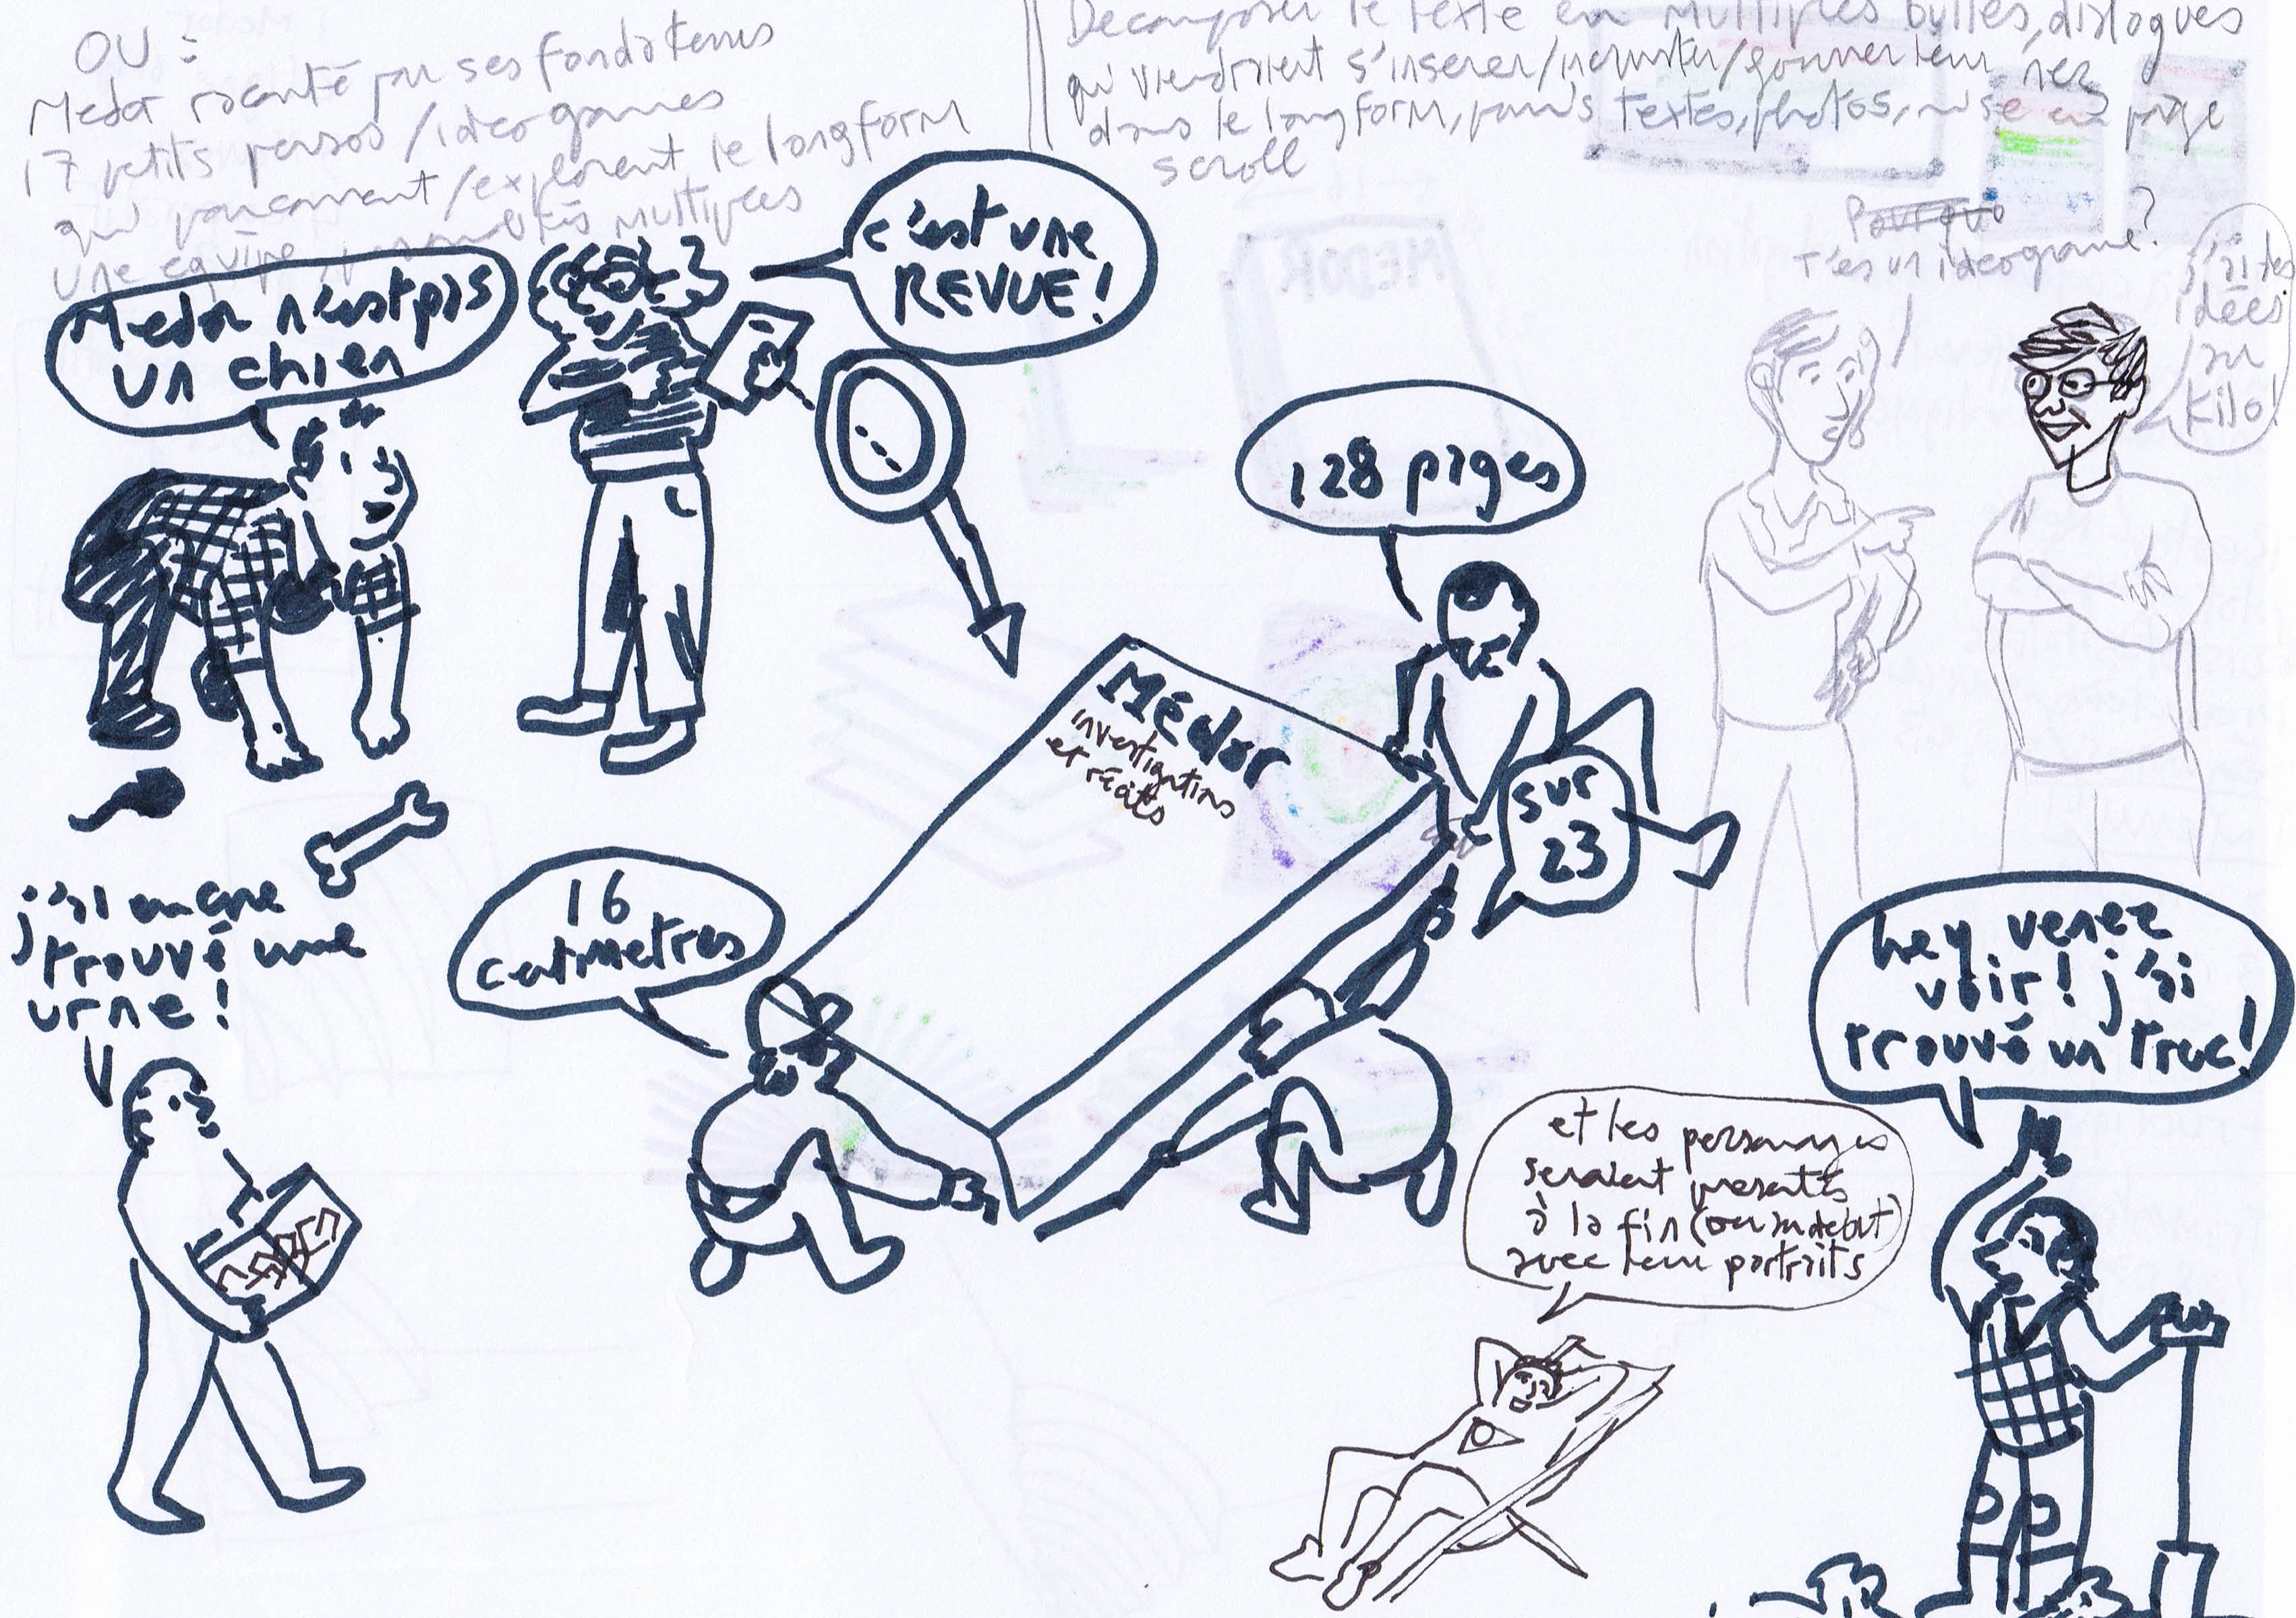 OU :
Medor raconté par ses fondateurs
17 petits persos/ideogrames
qui parcourent/explorent le longform
une equipe, personalités multiples
Decomposer le texte en multiples bulles, dialogues
qui viendraient s'inserer/incruster/fourrer leur nez
dans le longform, parmis textes, photos, mise en page
scroll
Pourquo
T'es un ideograme?
j'ai des
idées
au
Kilo!
Medor n'est pas
un chien
c'est une
REVUE!
128 pages
Médor
investigations
et récits
sur
23
16
centimetres
j'ai encore
trouvé une
urne!
hey venez
voir! j'ai
trouvé un truc!
et les personnages
seraient presentés
à la fin (ou au debut)
avec leur portraits